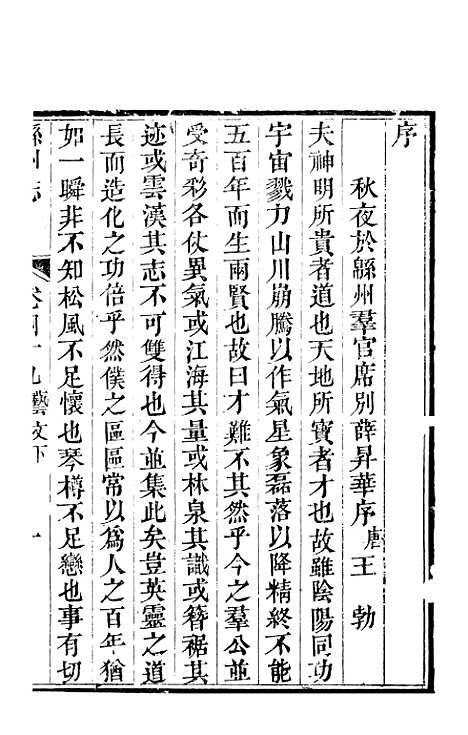 序
秋夜於緜州羣官席別薛昇華序 唐 王勃
夫神明所貴者道也天地所寶者才也故雖陰陽同功
宇宙戮力山川崩騰以作氣星象磊落以降精終不能
五百年而生兩賢也故曰才難不其然乎今之羣公並
受奇彩各仗異氣或江海其量或林泉其識或簪裾其
迹或雲漢其志不可雙得也今並集此矣豈英靈之道
長而造化之功倍乎然僕之區區常以爲人之百年猶
如一瞬非不知松風不足懷也琴樽不足戀也事有切
緜州志 卷四十九藝文下 一